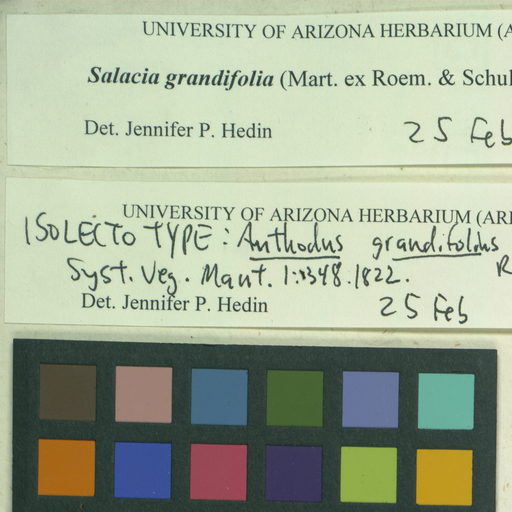 UNIVERSITY OF ARIZONA HERBARIUM (A
Salacia grandifolia (Mart. ex Roem. & Schul
Det. Jennifer P. Hedin 25 Feb
UNIVERSITY OF ARIZONA HERBARIUM (ARI
ISOLECTOTYPE: Anthodus grandifolius
Syst. Veg. Mant. 1:348.1822. R
Det. Jennifer P. Hedin 25 Feb